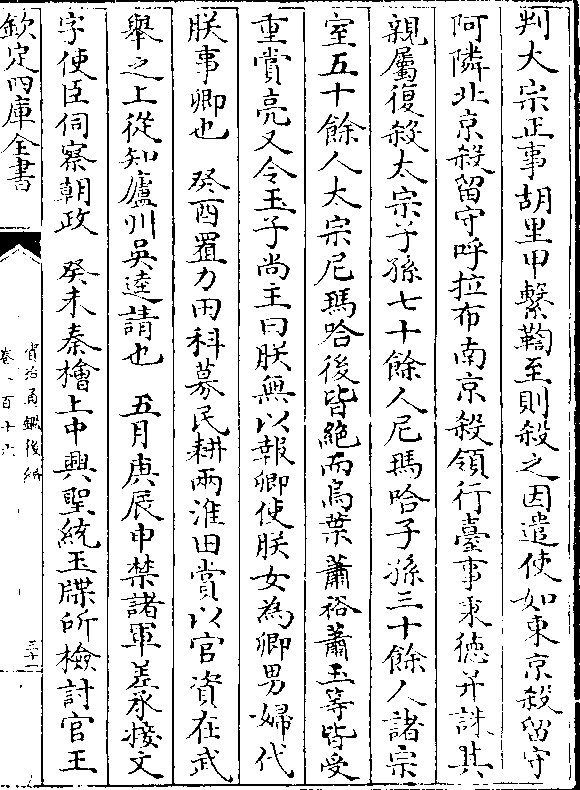 判大宗正事胡里甲繫鞫至則殺之因遣使如東京殺留守
阿隣北京殺留守呼拉布南京殺領行臺事秉德并誅其
親屬復殺太宗子孫七十餘人尼瑪哈子孫三十餘人諸宗
室五十餘人太宗尼瑪哈後皆絶而烏葉蕭裕蕭玉等皆受
重賞亮又令玉子尚主曰朕無以報卿使朕女為卿男婦代
朕事卿也　癸酉置力田科募民耕兩淮田賞以官資在武
舉之上從知廬州吳逵請也　五月庚辰申禁諸軍差承接文
字使臣伺察朝政　癸未秦檜上中興聖統玉牒所檢討官王
欽定四庫全書
資治通鑑後編
卷一百十六
三十二